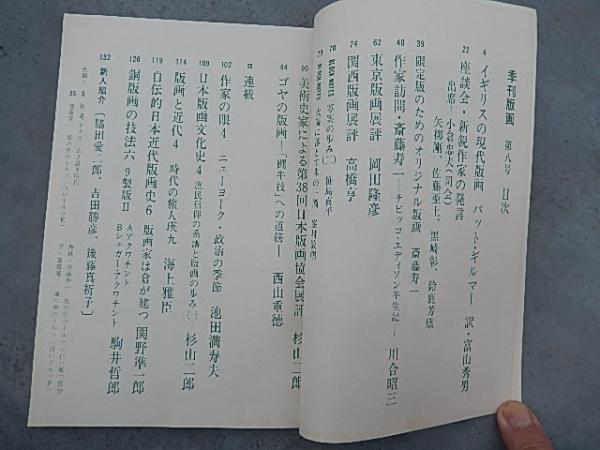 季刊版画 第八号 目次
4 イギリスの現代版画 パット・ギルマー 訳・富山秀男
22 座談会・新鋭作家の発言
出席・小倉忠夫(司会)
矢柳剛、佐藤亜土、黒崎彰、鈴鹿芳康
39 限定版のためのオリジナル版画 斎藤寿一
40 作家訪問・斎藤寿一――チビッコ・エディソン半生記―― 川合昭三
62 東京版画展評 岡田隆彦
74 関西版画展評 高橋亨
78 BLOCK NOTES 写実の歩み(二) 笹島喜平
79 BLOCK NOTES
90 美術史家による第38回日本版画協会展評 杉山二郎
94 ゴヤの版画――「闘牛技」への道筋―― 西山重徳
■ 連載
102 作家の眼4 ニューヨーク・政治の季節 池田満寿夫
109 日本版画文化史4 庶民信仰の系譜と版画のルみ(一) 杉山二郎
114 版画と近代4 時代の旅人瑛九 海上雅臣
119 自伝的日本近代版画史6 版画家は倉が建つ 関野準一郎
126 銅版画の技法六 9製版Ⅱ Aアクワチント
Bシュガー・アクワチント 駒井哲郎
132 新人紹介 〔脇田愛二郎、吉田勝彦、後藤真祈子〕